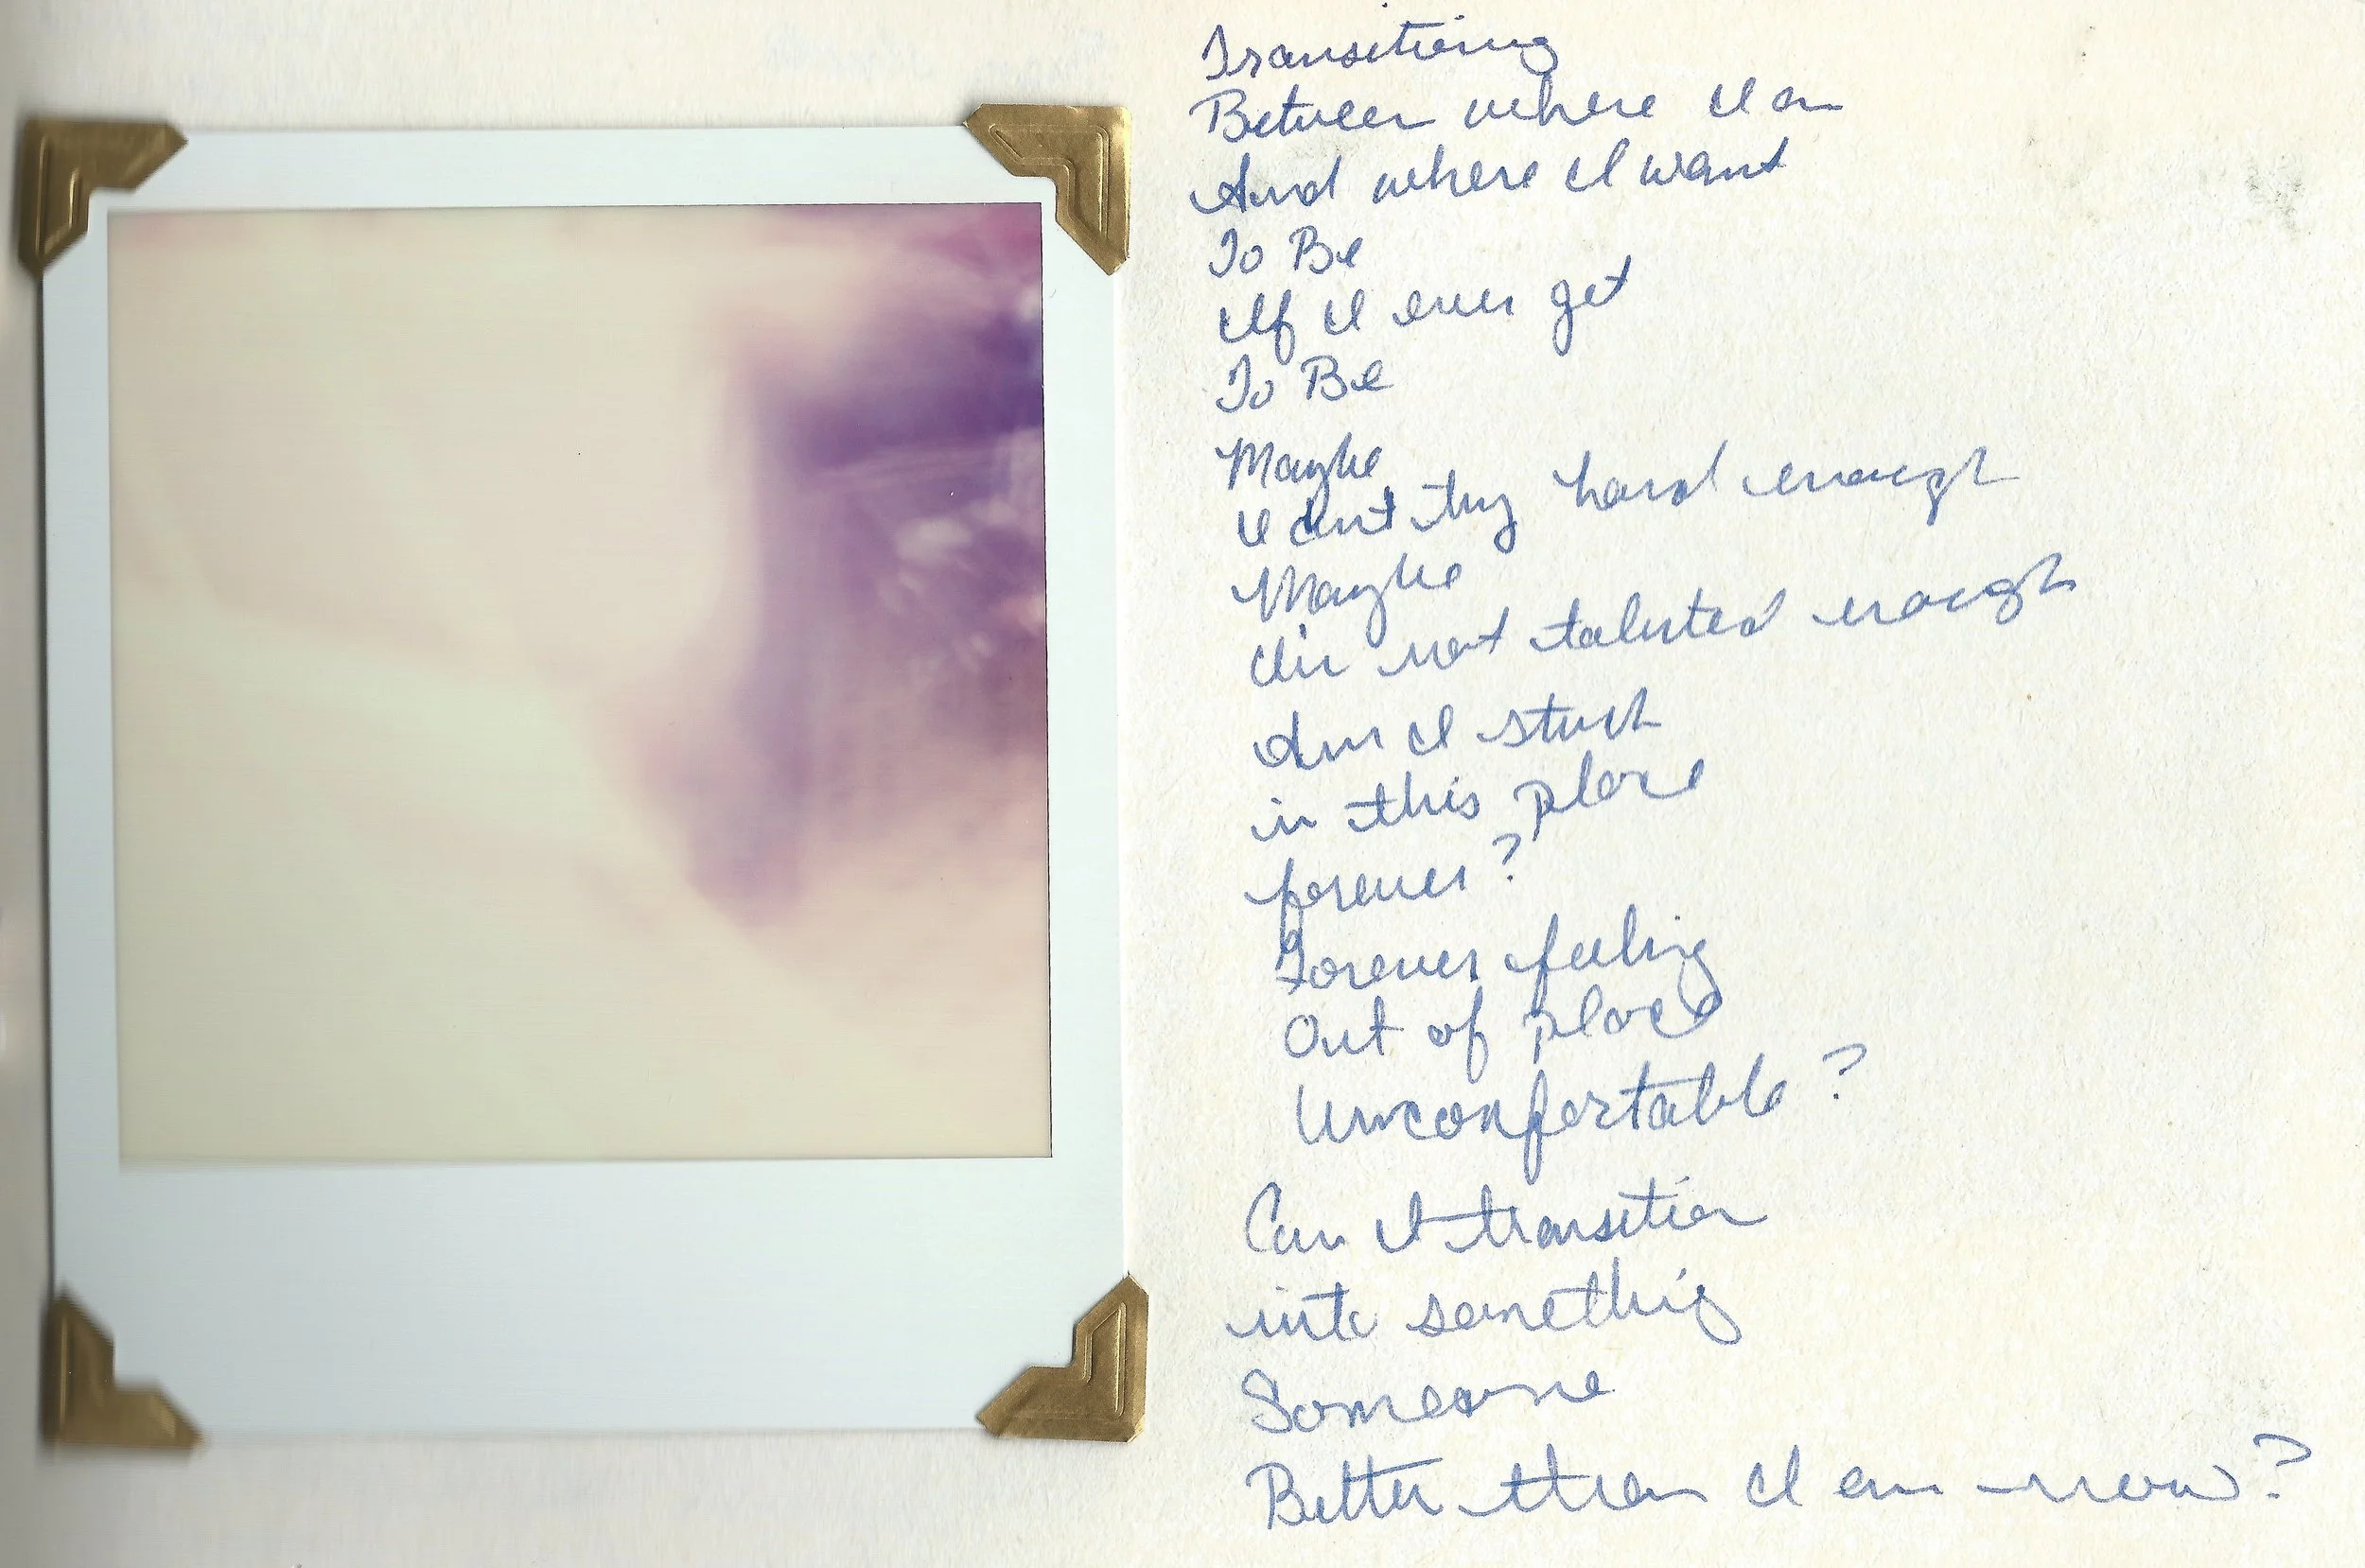 Transitioning
Between where I am
And where I want
To Be
If I ever get
To Be
Maybe
I dont try hard enough
Maybe
I'm not talented enough
Am I stuck
in this place
forever?
Forever feeling
Out of place
Uncomfortable?
Can I transition
into something
Someone
Better than I am now?